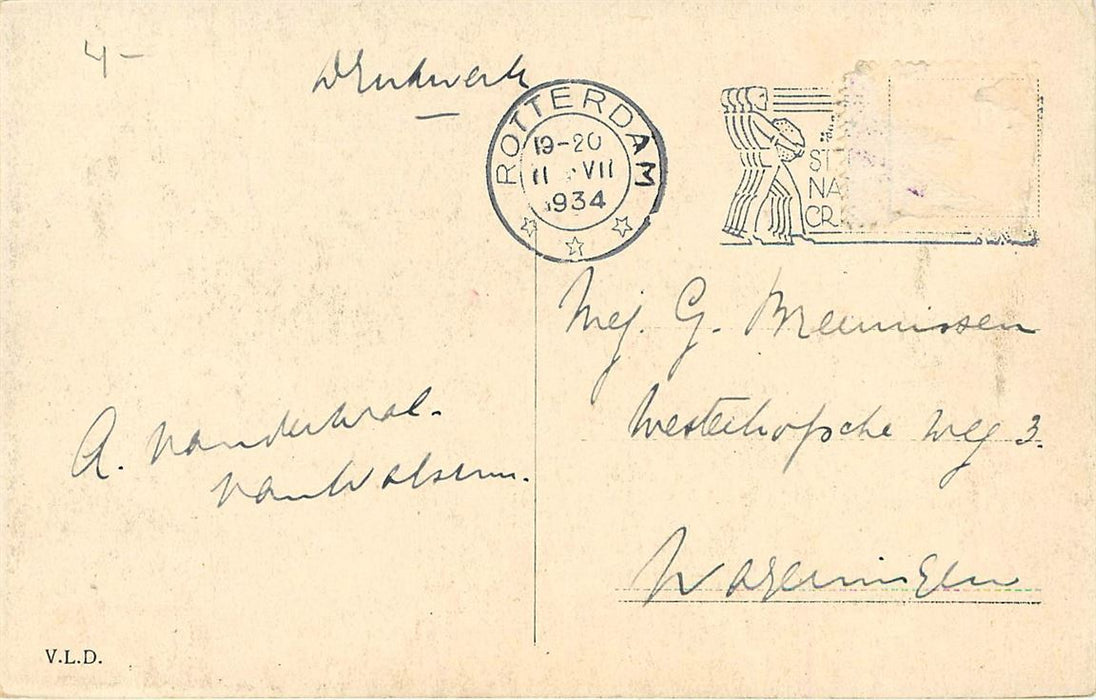 4-
Drukwerk
ROTTERDAM
19-20
11 VII
1934
ST
NA
CR
Mej. G. Breunissen
Westerhofsche Weg 3.
Wageningen
A. Vanderwal.
Van Walsum.
V.L.D.